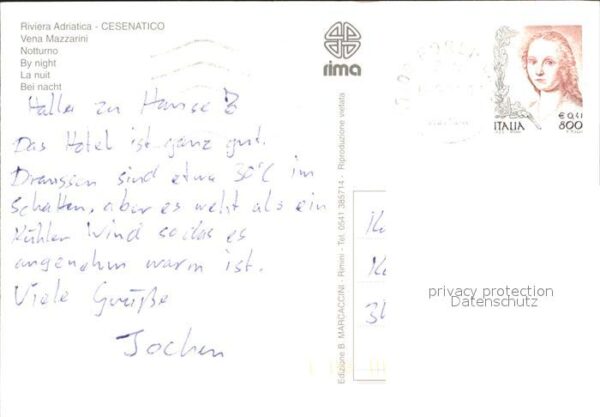 Riviera Adriatica - CESENATICO
Vena Mazzarini
Notturno
By night
La nuit
Bei nacht
rima
Hallo zu Hause
Das Hotel ist ganz gut.
Draussen sind etwa 30°C im
Schatten, aber es weht als ein
Kühler Wind sodas es
angenehm warm ist.
Viele Grüße
Jochen
Edizione B. MARCACCINI - Rimini - Tel. 0541 385714 - Riproduzione vietata
ITALIA
€ 0,41
800
privacy protection
Datenschutz